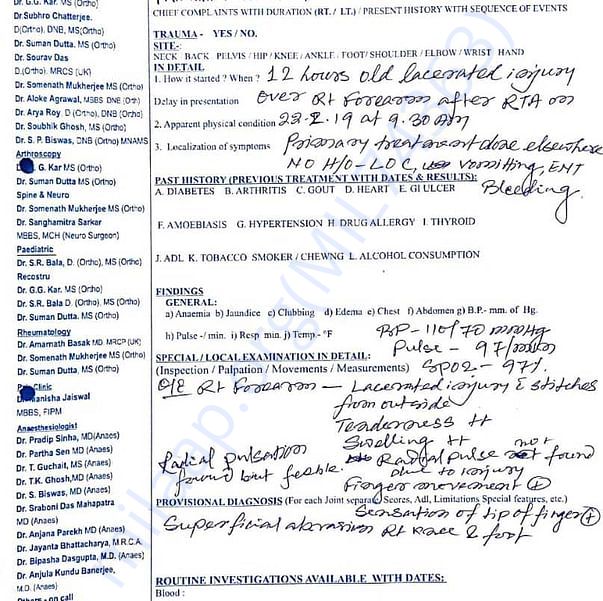 Dr. G.G. Kar. MS (Ortho)
Dr.Subhro Chatterjee.
D(Ortho), DNB, MS(Ortho)
Dr. Suman Dutta. MS (Ortho)
Dr. Sourav Das
D.(Ortho). MRCS (UK)
Dr. Somenath Mukherjee MS (Ortho)
Dr. Aloke Agrawal, MBBS DNB (Orth)
Dr. Arya Roy, D (Ortho), DNB (Ortho)
Dr. Soubhik Ghosh, MS (Ortho)
Dr. S. P. Biswas, DNB (Ortho) MNAMS
Arthroscopy
G. Kar MS (Ortho)
Dr. Suman Dutta MS (Ortho)
Spine & Neuro
Dr. Somenath Mukherjee MS (Ortho)
Dr. Sanghamitra Sarkar
MBBS, MCH (Neuro Surgeon)
Paediatric
Dr. S.R. Bala, D. (Ortho), MS (Ortho)
Recostru
Dr. G.G. Kar. MS (Ortho)
Dr. S.R. Bala D. (Ortho), MS (Ortho)
Dr. Suman Dutta. MS (Ortho)
Rheumatology
Dr. Amarnath Basak MD. MRCP (UK)
Dr. Somenath Mukherjee MS (Ortho)
Dr. Suman Dutta, MS (Ortho)
Clinic
Manisha Jaiswal
MBBS, FIPM
Anaesthesiologist
Dr. Pradip Sinha, MD(Anaes)
Dr. Partha Sen MD (Anaes)
Dr. T. Guchait, MS (Anaes)
Dr. T.K. Ghosh,MD (Anaes)
Dr. S. Biswas, MD (Anaes)
Dr. Sraboni Das Mahapatra
MD (Anaes)
Dr. Anjana Parekh MD (Anaes)
Dr. Jayanta Bhattacharya, M.R.C.A.
Dr. Bipasha Dasgupta, M.D. (Anaes)
Dr. Anjula Kundu Banerjee,
M.D. (Anaes)
Others - on call
CHIEF COMPLAINTS WITH DURATION (RT. / LT.) / PRESENT HISTORY WITH SEQUENCE OF EVENTS
TRAUMA - YES / NO.
SITE:-
NECK BACK PELVIS / HIP / KNEE / ANKLE FOOT/ SHOULDER / ELBOW / WRIST HAND
IN DETAIL
1. How it started ? When ? 12 hours old lacerated injury
Delay in presentation over Rt Forearm after RTA on
2. Apparent physical condition 22.2.19 at 9.30 Am
3. Localization of symptoms Primary treatment done elsewhere
NO H/O - LOC, vomitting, ENT
Bleeding.
PAST HISTORY (PREVIOUS TREATMENT WITH DATES & RESULTS):
A. DIABETES B. ARTHRITIS C. GOUT D. HEART E. GI ULCER
F. AMOEBIASIS G. HYPERTENSION H. DRUG ALLERGY I. THYROID
J. ADL K. TOBACCO SMOKER / CHEWNG L. ALCOHOL CONSUMPTION
FINDINGS
GENERAL:
a) Anaemia b) Jaundice c) Clubbing d) Edema e) Chest f) Abdomen g) B.P.- mm. of Hg.
h) Pulse - / min. i) Resp min. j) Temp.- °F BP - 110/70 mmHg
Pulse - 97/min
SPECIAL / LOCAL EXAMINATION IN DETAIL:
(Inspection / Palpation / Movements / Measurements) SPO2 - 97%
O/E Rt Forearm - Lacerated injury & stitches
from outside
Tenderness ++
Swelling ++
Radial pulsation found but feable.
Radial pulse not found
due to injury
Finger movement (+)
PROVISIONAL DIAGNOSIS (For each Joint separate Scores, Adl, Limitations Special features, etc.)
Sensation of tip of finger (+)
Superficial abrasion Rt face & foot
ROUTINE INVESTIGATIONS AVAILABLE WITH DATES:
Blood :